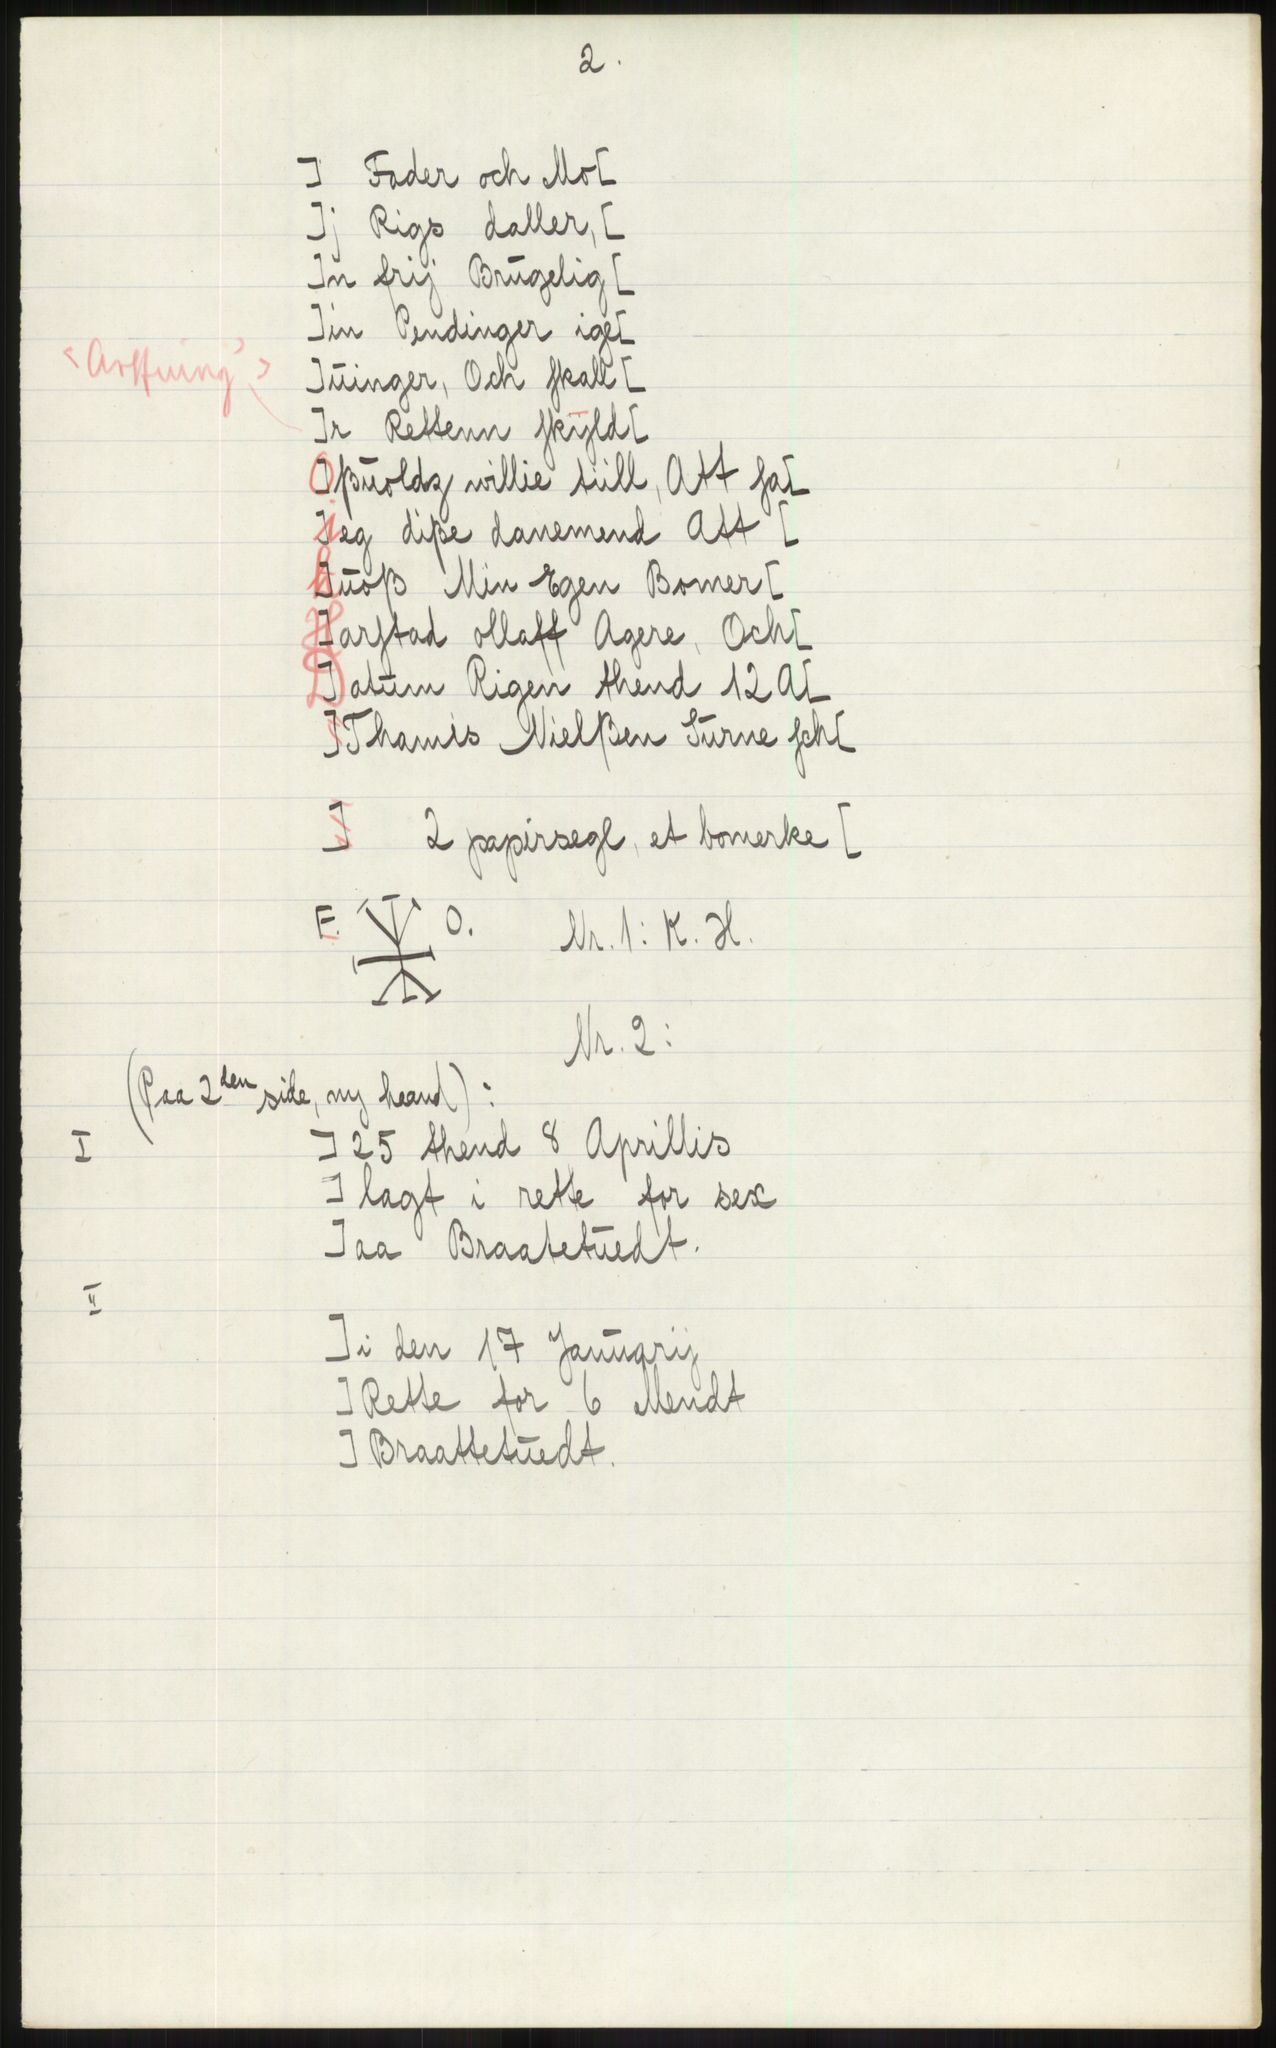 2.
] Fader och Mo[
]j Rigs daller, [
]n frij Brŭgelig [
]in Pendinger ige[
"Arffning"
]ŭinger, Och skall [
]r Rettenn skÿld[
O]ßŭoldz willie tiill, Att ſa[
J]eg diße danemend Att [
h]ŭoß Min Egen Bomer[
H]arſtad ollaff Agere, Och[
D]atŭm Rigen thend 12 A[
]Thamis Nielßen Sŭrne ſch[
] 2 papirsegl, et bomerke [
F. O. Nr. 1: K. H.
Nr. 2:
(Paa 2den side, ny haand):
I ]25 thend 8 Aprillis
] lagt i rette for sex
]aa Braatetŭedt.
II
]i den 17 Janŭarij
] Rette for 6 Mendt
] Braattetŭedt.